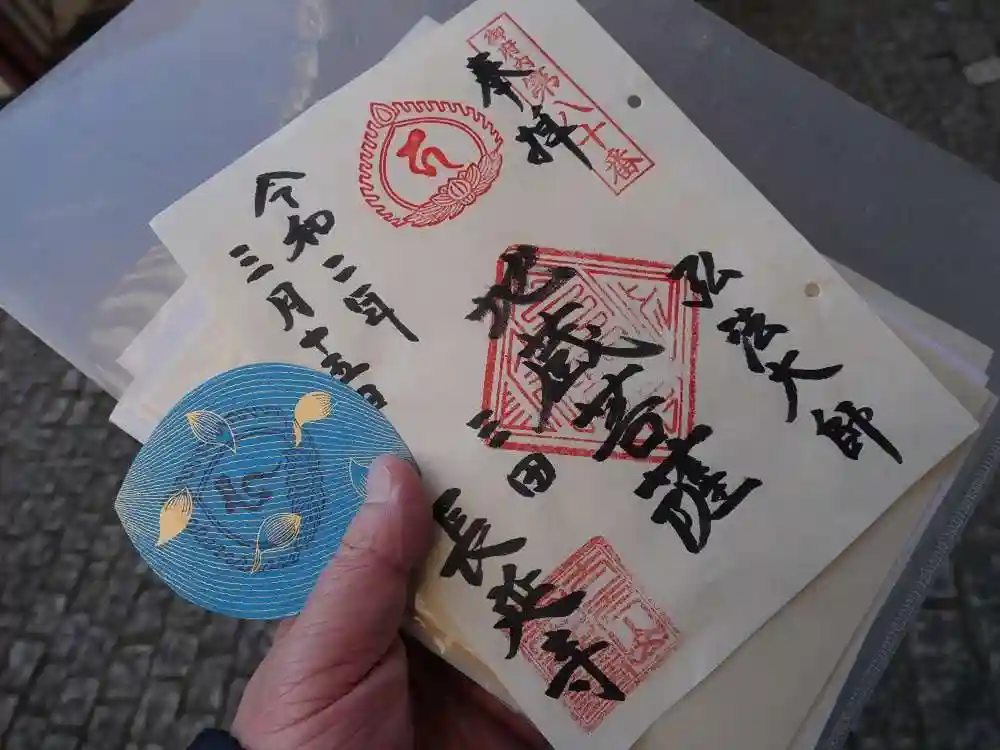 御府内第八十番
奉拝
弘法大師
地蔵菩薩
三田
長延寺
令和二年
三月十五日